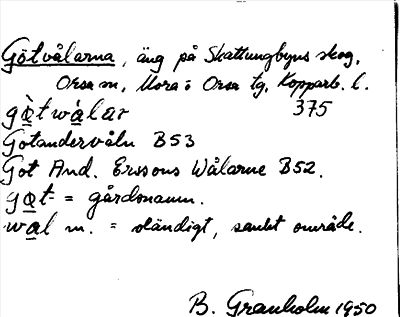 Götvålarna, äng på Skattungbyns skog,
Orsa sn, Mora o Orsa tg, Kopparb. l.
gə̀twàlar 375
Gotandervåln B53
Got And. Erssons Wålarne B52.
gət- = gårdsnamn.
wal m. = ständigt, sankt område.
B. Granholm 1950